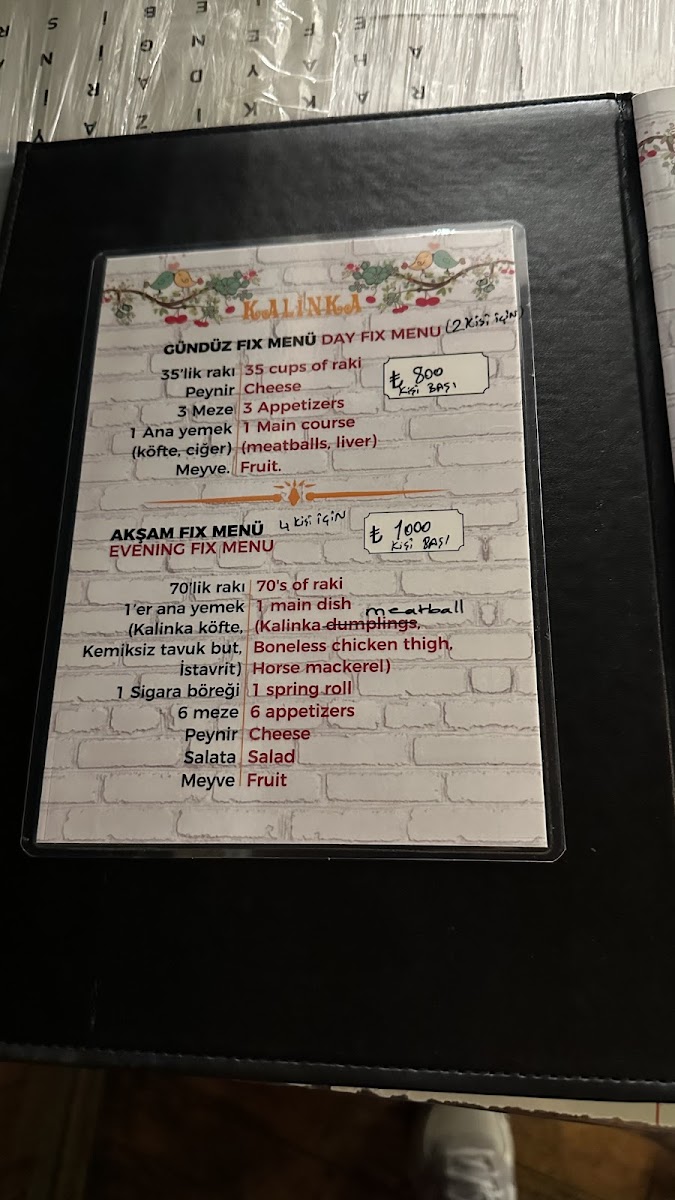 KALİNKA
GÜNDÜZ FIX MENÜ DAY FIX MENU (2 Kişi için)
35'lik rakı 35 cups of raki
₺ 800
Peynir Cheese
KİŞİ BAŞI
3 Meze 3 Appetizers
1 Ana yemek 1 Main course
(köfte, ciğer) (meatballs, liver)
Meyve. Fruit.
AKŞAM FIX MENÜ 4 kişi için
₺ 1000
EVENING FIX MENU
KİŞİ BAŞI
70'lik rakı 70's of raki
1'er ana yemek 1 main dish meatball
(Kalinka köfte, (Kalinka dumplings,
Kemiksiz tavuk but, Boneless chicken thigh,
İstavrit) Horse mackerel)
1 Sigara böreği 1 spring roll
6 meze 6 appetizers
Peynir Cheese
Salata Salad
Meyve Fruit